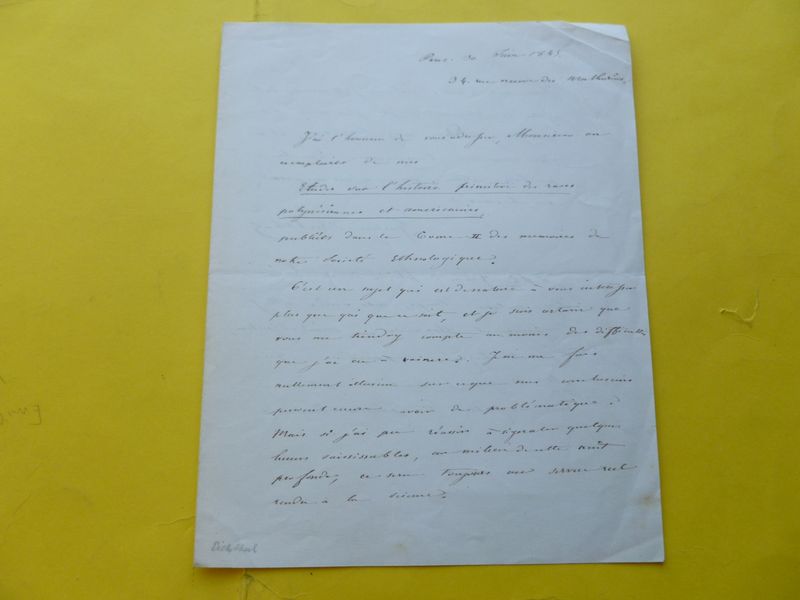 Paris. 30 Juin 1845.
34. rue neuve des Mathurins.
J'ai l'honneur de vous adresser, Monsieur un
exemplaire de mes
Etudes sur l'histoire primitive des races
polynésiennes et américaines,
publiés dans le Tome II des memoires de
notre Société Ethnologique.
C'est un sujet qui est de nature à vous intéresser
plus que qui que ce soit, et je suis certain que
vous me tiendrez compte au moins des difficultés
que j'ai eu à vaincre. Je ne me fais
nullement illusion sur ce que mes conclusions
peuvent encore avoir de problématique.
Mais si j'ai pu réussir à signaler quelques
lueurs saisissables, au milieu de cette nuit
profonde, ce sera toujours un service réel
rendu à la science.